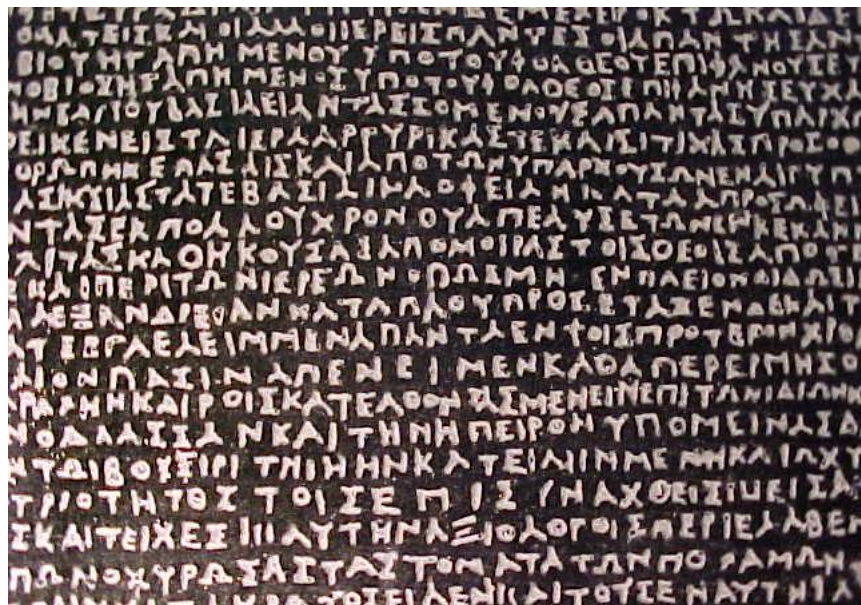 ΟΚΤΩΚΑΙΔΕ
ΟΙΑΛΛΟΙΙΕΡΕΙΣΠΑΝΤΕΣΟΙΑΠΑΝΤΗΣΑΝ
ΒΙΟΥΗΓΑΠΗΜΕΝΟΥΥΠΟΤΟΥΦΘΑΘΕΟΥΕΠΙΦΑΝΟΥΣΕΥ
ΝΟΒΙΟΣΗΓΑΠΗΜΕΝΟΣΥΠΟΤΟΥΦΘΑΘΕΟΣΕΠΙΦΑΝΗΣΕΥΧΑ
ΗΝΕΑΥΤΟΥΒΑΣΙΛΕΙΑΝΤΑΣΣΟΜΕΝΟΥΣΑΠΑΝΤΑΣΥΠΑΡΧ
ΘΕΙΚΕΝΕΙΣΤΑΙΕΡΑΑΡΓΥΡΙΚΑΣΤΕΚΑΙΣΙΤΙΚΑΣΠΡΟΣΟ
ΚΑΙΑΠΟΤΩΝΥΠΑΡΧΟΥΣΩΝΕΝΑΙΓΥΠ
ΤΑΤΕΒΑΣΙΛΙΚΑΟΦΕΙΛΗΜΑΤΑΑΠΡΟΣΩΦΕΙ
ΝΤΑΣΕΚΠΟΛΛΟΥΧΡΟΝΟΥΑΠΕΛΥΣΕΤΩΝΕΝΚΕΚΛΗ
ΑΙΤΑΣΚΑΘΗΚΟΥΣΑΣΑΠΟΜΟΙΡΑΣΤΟΙΣΘΕΟΙΣΑΠΟΤ
ΕΚΑΙΠΕΡΙΤΩΝΙΕΡΕΩΝΟΠΩΣΜΗΘΕΝΠΛΕΙΟΝΔΙΔΩΣΙ
ΑΛΕΞΑΝΔΡΕΙΑΝΚΑΤΑΠΛΟΥΠΡΟΣΕΤΑΞΕΝΔΕΚΑΙΤ
ΑΤΕΕΓΛΕΛΕΙΜΜΕΝΑΠΑΝΤΑΕΝΤΟΙΣΠΡΟΤΕΡΟΝΧΡΟ
ΙΟΝΠΑΣΙΝΑΠΕΝΕΙΜΕΝΚΑΘΑΠΕΡΕΡΜΗΣΟ
ΑΡΑΧΗΝΚΑΙΡΟΙΣΚΑΤΕΛΘΟΝΤΑΣΜΕΝΕΙΝΕΠΙΤΩΝΙΔΙΩΝ
ΝΘΑΛΑΣΣΑΝΚΑΙΤΗΝΗΠΕΙΡΟΝΥΠΟΜΕΙΝΑΣΔ
ΝΤΩΙΒΟΥΣΙΡΙΤΗΙΗΗΝΚΑΤΕΙΛΗΜΜΕΝΗΚΑΙΩΧΥ
ΤΡΙΟΤΗΤΟΣΤΟΙΣΕΠΙΣΥΝΑΧΘΕΙΣΙΝΕΙΣΑ
ΣΚΑΙΤΕΙΧΕΣΙΝΑΥΤΗΝΑΞΙΟΛΟΓΟΙΣΠΕΡΙΕΛΑΒΕΝ
ΠΩΝΟΧΥΡΩΣΑΣΤΑΣΤΟΜΑΤΑΤΩΝΠΟΤΑΜΩΝ
ΕΙΛΕΝΚΑΙΤΟΥΣΕΝΑΥΤΗΙΑ